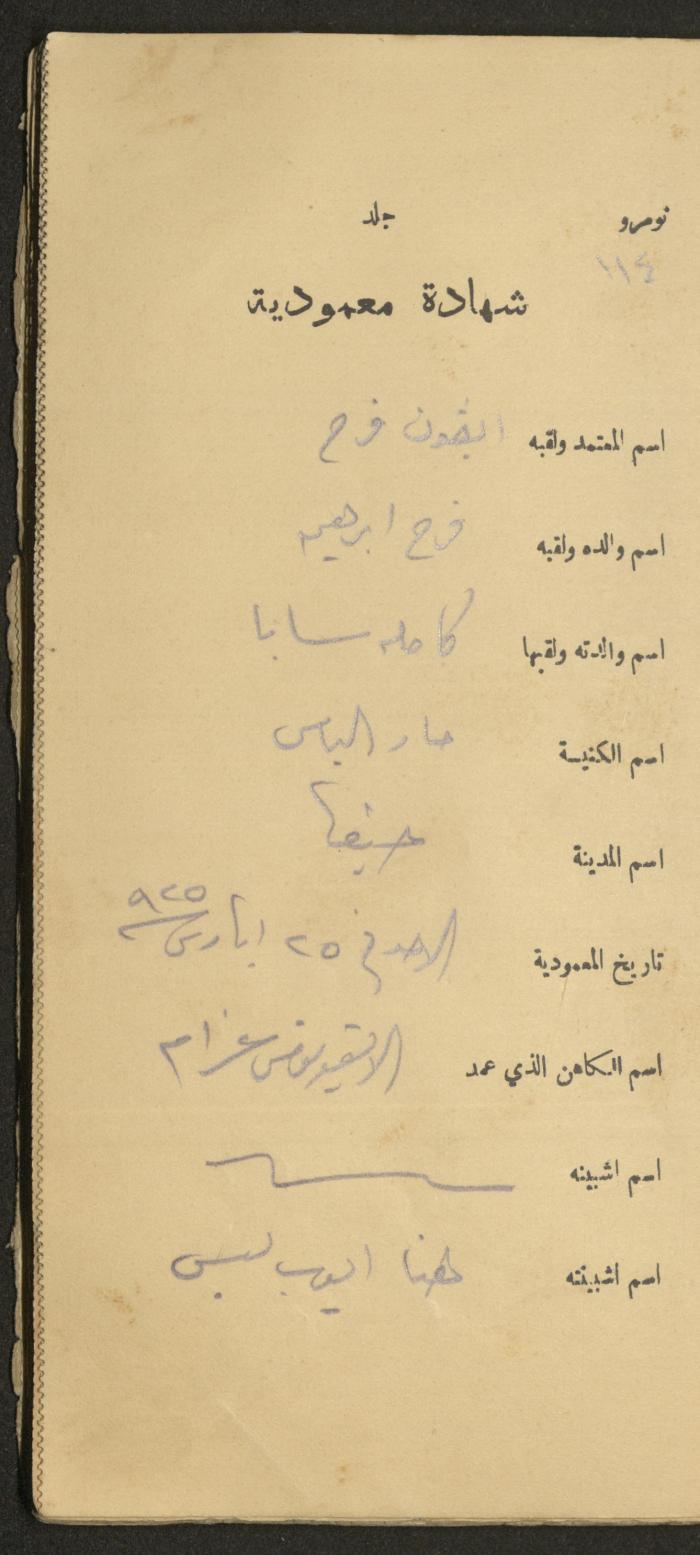 نومرو جلد
١١٤
شهادة معمودية
اسم المعتمد ولقبه فرح
اسم والده ولقبه فرح ابرهيم
اسم والدته ولقبها كامله سابا
اسم الكنيسة مار الياس
اسم المدينة حيفا
تاريخ المعمودية الاحد في ٢٥ ٩٢٥
اسم الكاهن الذي عمد عزام
اسم اشبينه
اسم اشبينته حنا ايوب